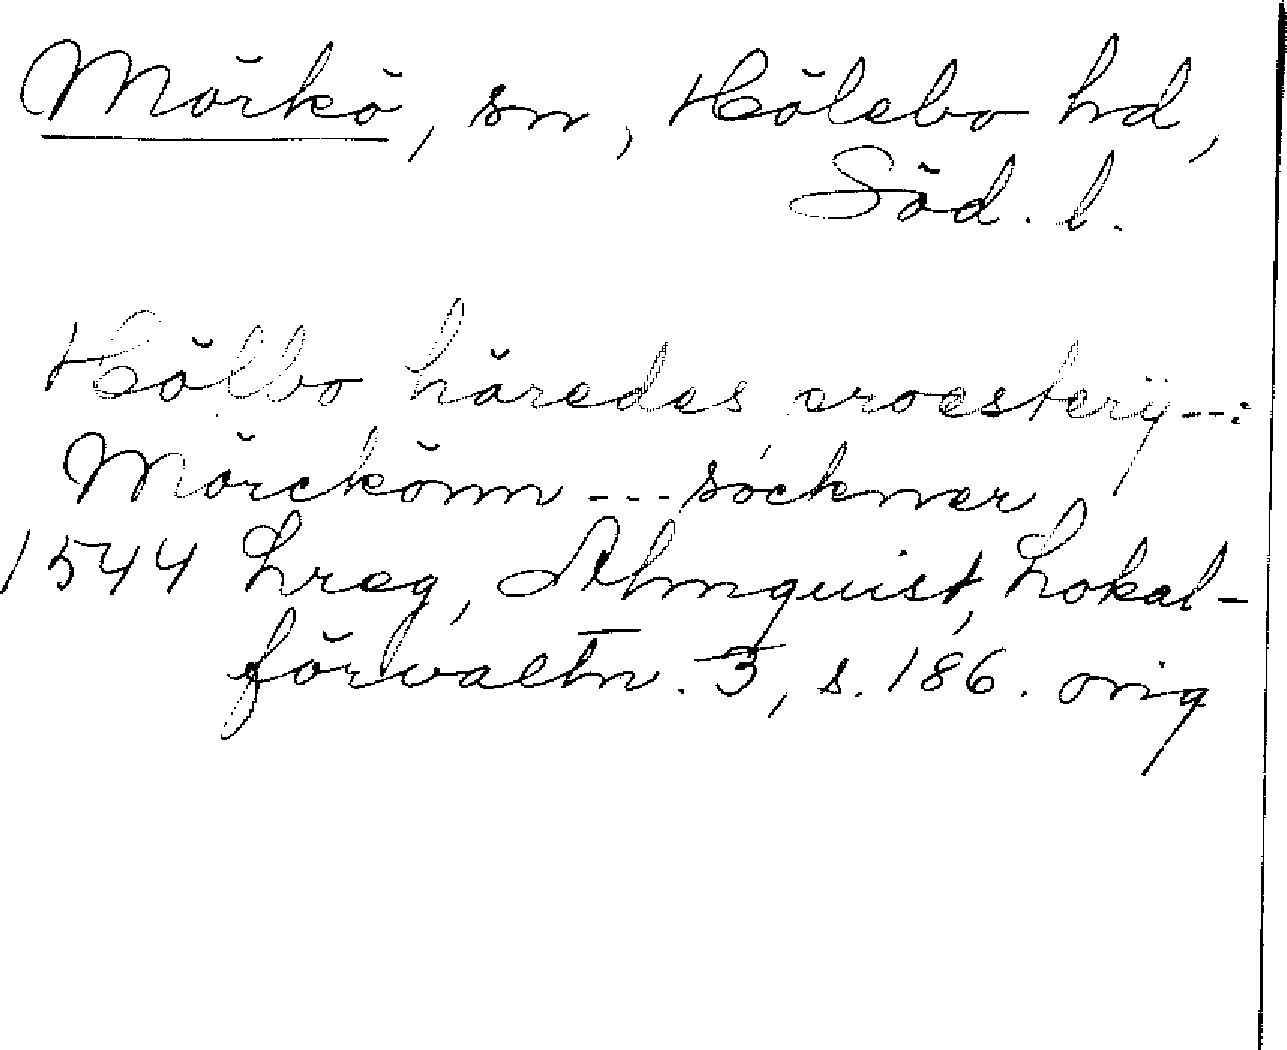 Mörkö, sn, Hölebo hd,
Söd. l.
Hölbo häredes proesterij --:
Mörckönn --- söckner
1544 Lreg, Almquist, Lokal-
förvaltn. 3, s. 186. orig